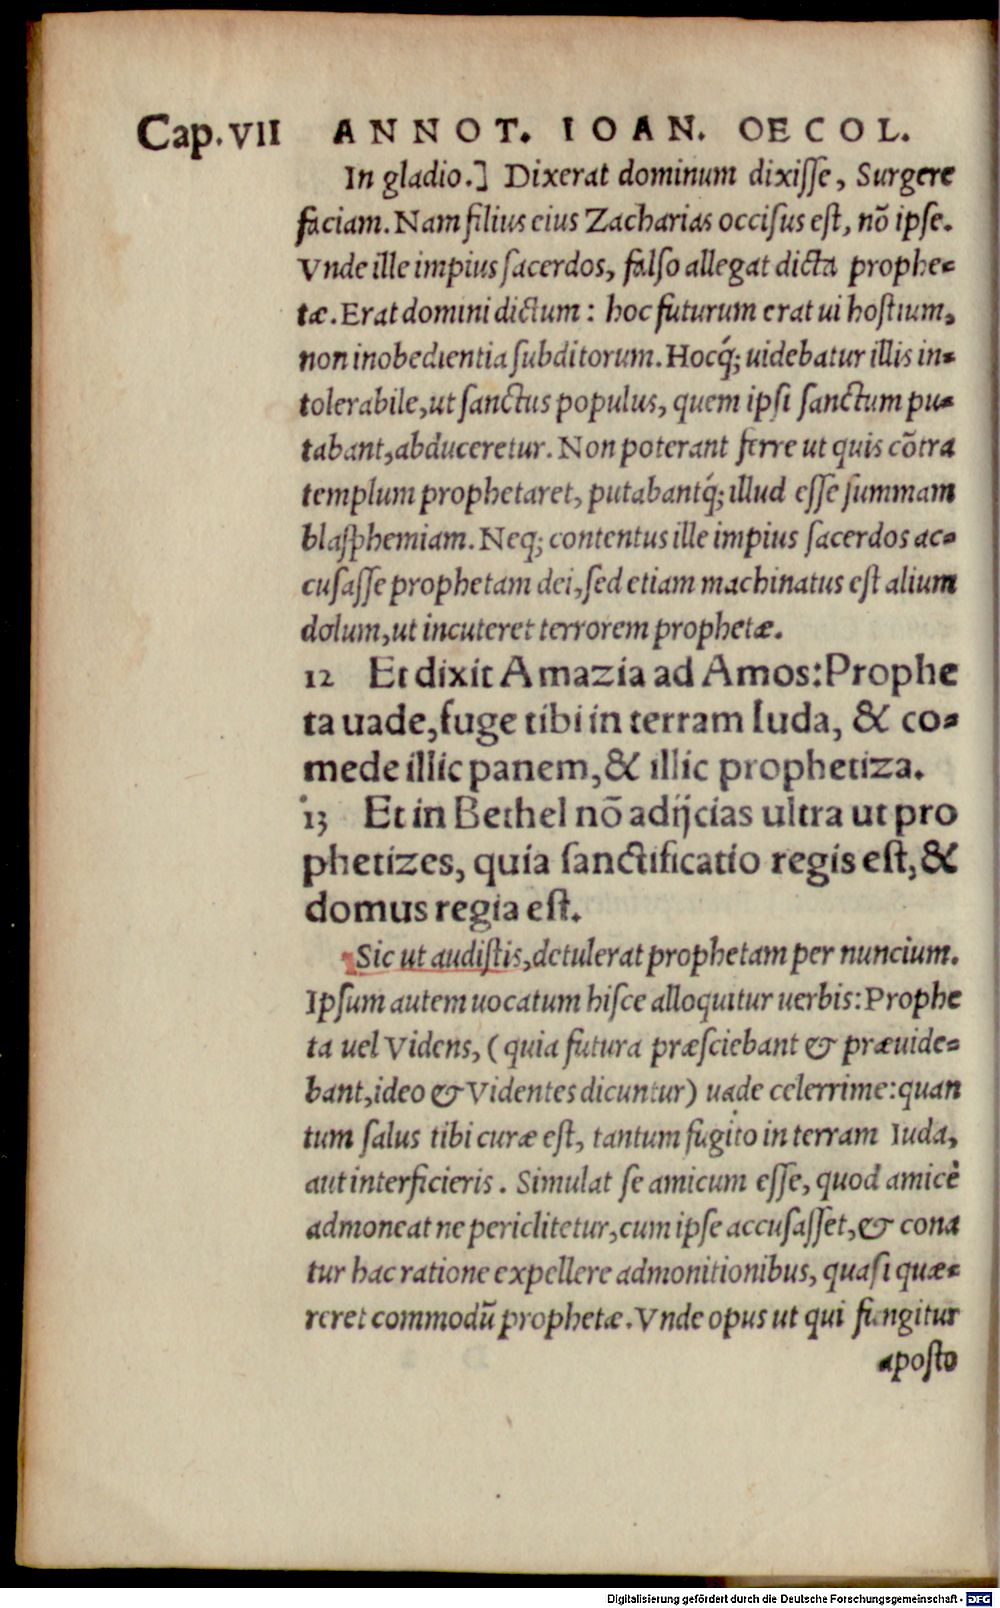 Cap. VII ANNOT. IOAN. OECOL.
In gladio.] Dixerat dominum dixiſſe, Surgere
faciam. Nam filius eius Zacharias occiſus eſt, nō ipſe.
Vnde ille impius ſacerdos, falſo allegat dicta prophe-
tæ. Erat domini dictum: hoc futurum erat ui hoſtium,
non inobedientia ſubditorum. Hocq́; uidebatur illis in-
tolerabile, ut ſanctus populus, quem ipſi ſanctum pu-
tabant, abduceretur. Non poterant ferre ut quis cōtra
templum prophetaret, putabantq́; illud eſſe ſummam
blaſphemiam. Neq; contentus ille impius ſacerdos ac-
cuſaſſe prophetam dei, ſed etiam machinatus eſt alium
dolum, ut incuteret terrorem prophetæ.
12 Et dixit Amazia ad Amos: Prophe
ta uade, fuge tibi in terram Iuda, & co-
mede illic panem, & illic prophetiza.
13 Et in Bethel nō adijcias ultra ut pro
phetizes, quia ſanctificatio regis eſt, &
domus regia eſt.
Sic ut audiſtis, detulerat prophetam per nuncium.
Ipſum autem uocatum hiſce alloquitur uerbis: Prophe
ta uel Videns, (quia futura præſciebant & præuide-
bant, ideo & Videntes dicuntur) uade celerrime: quan
tum ſalus tibi curæ eſt, tantum fugito in terram Iuda,
aut interficieris. Simulat ſe amicum eſſe, quod amicè
admoneat ne periclitetur, cum ipſe accuſaſſet, & cona
tur hac ratione expellere admonitionibus, quaſi quæ-
reret commodū prophetæ. Vnde opus ut qui fungitur
apoſto
Digitalisierung gefördert durch die Deutsche Forschungsgemeinschaft - DFG